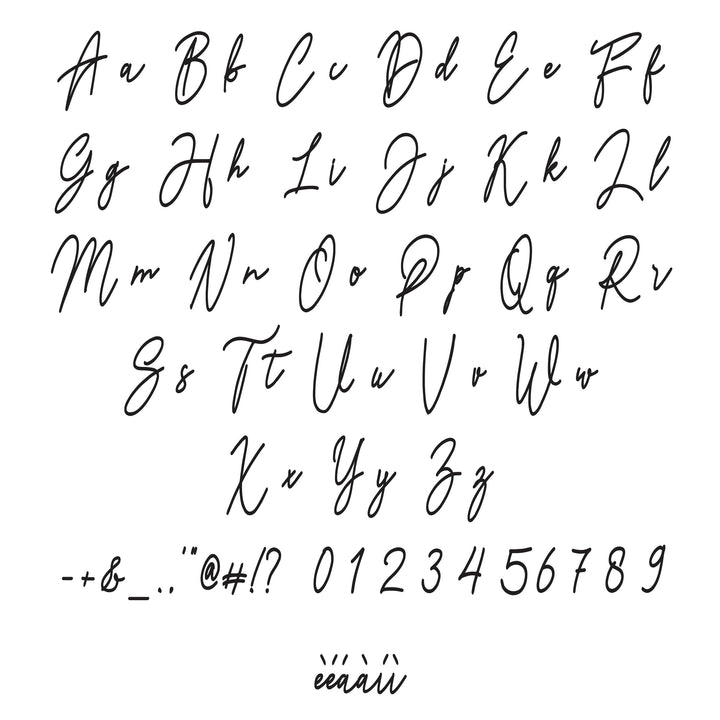 Aa Bb Cc Dd Ee Ff
Gg Hh Ii Jj Kk Ll
Mm Nn Oo Pp Qq Rr
Ss Tt Uu Vv Ww
Xx Yy Zz
-+&_..'"@#!? 0123456789